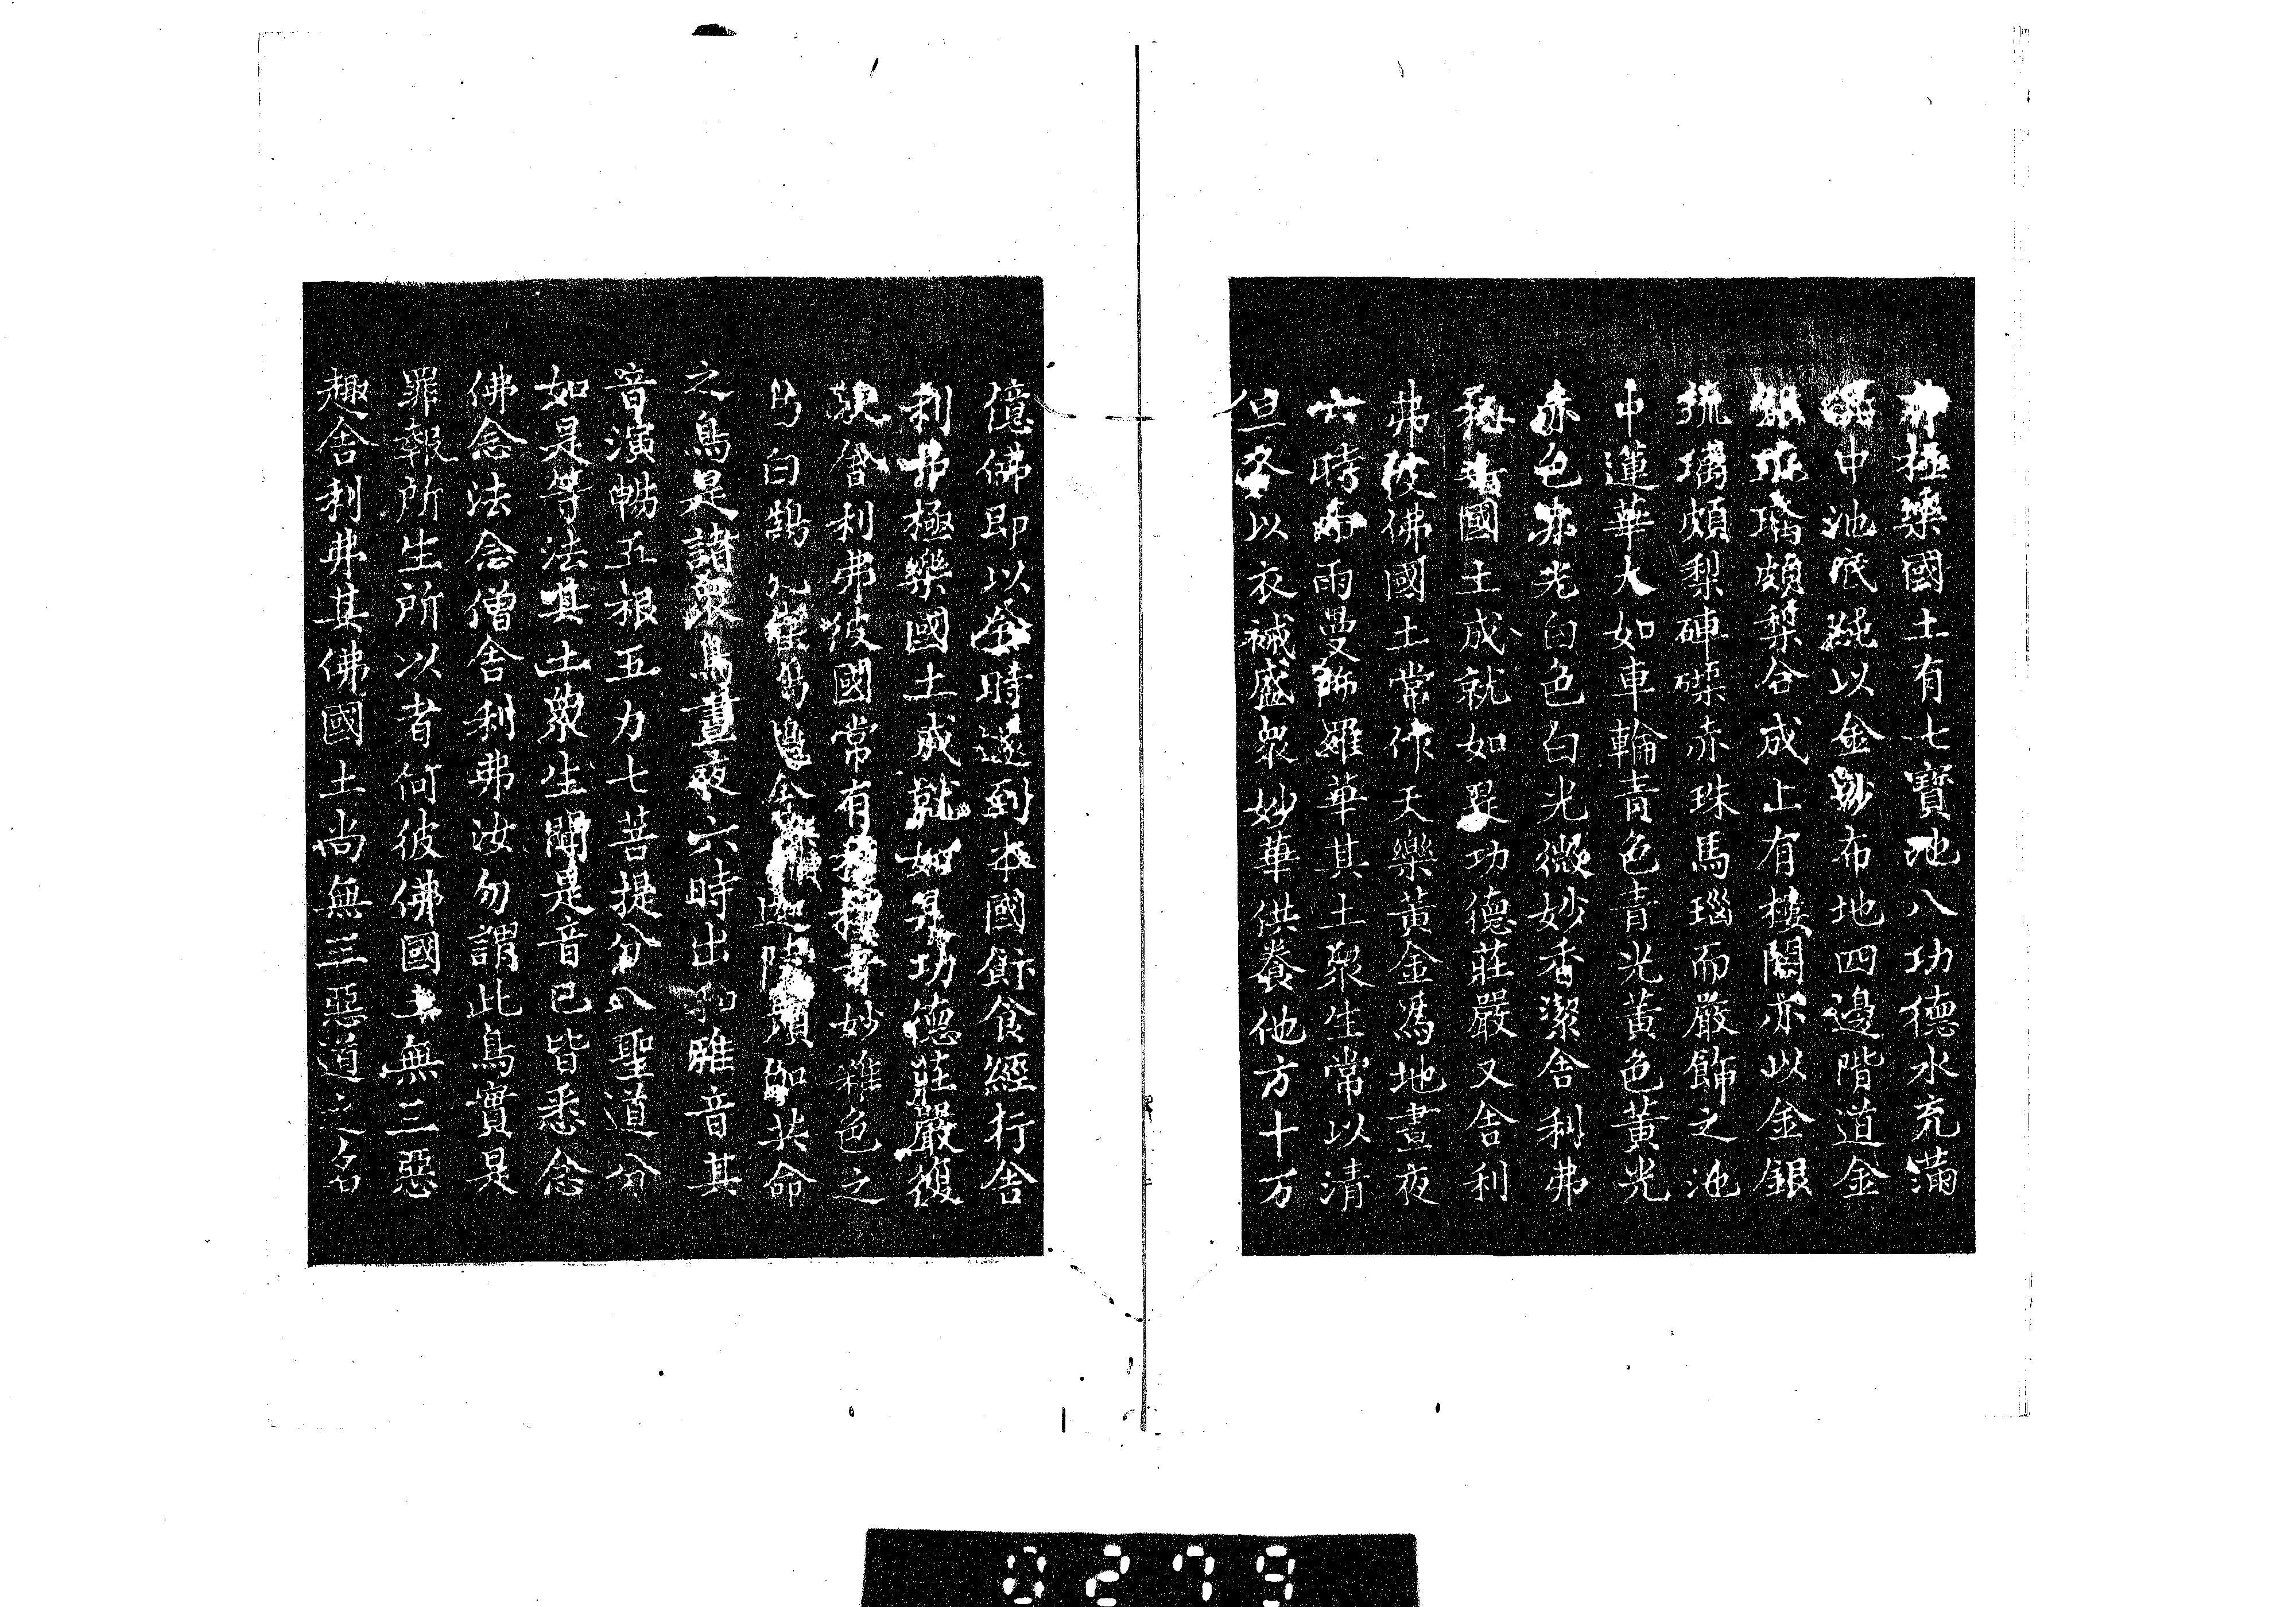 弗極樂國土有七寶池八功德水充滿
其中池底純以金沙布地四邊階道金
銀琉璃頗梨合成上有樓閣亦以金銀
琉璃頗梨硨磲赤珠馬瑙而嚴飾之池
中蓮華大如車輪青色青光黃色黃光
赤色赤光白色白光微妙香潔舍利弗
極樂國土成就如是功德莊嚴又舍利
弗彼佛國土常作天樂黃金爲地晝夜
六時而雨曼陁羅華其土衆生常以清
旦各以衣裓盛衆妙華供養他方十万
億佛即以食時還到本國飯食經行舍
利弗極樂國土成就如是功德莊嚴復
次舍利弗彼國常有種種奇妙雜色之
鳥白鵠孔雀鸚鵡舍利迦陵頻伽共命
之鳥是諸衆鳥晝夜六時出和雅音其
音演暢五根五力七菩提分八聖道分
如是等法其土衆生聞是音已皆悉念
佛念法念僧舍利弗汝勿謂此鳥實是
罪報所生所以者何彼佛國土無三惡
趣舍利弗其佛國土尚無三惡道之名
0279